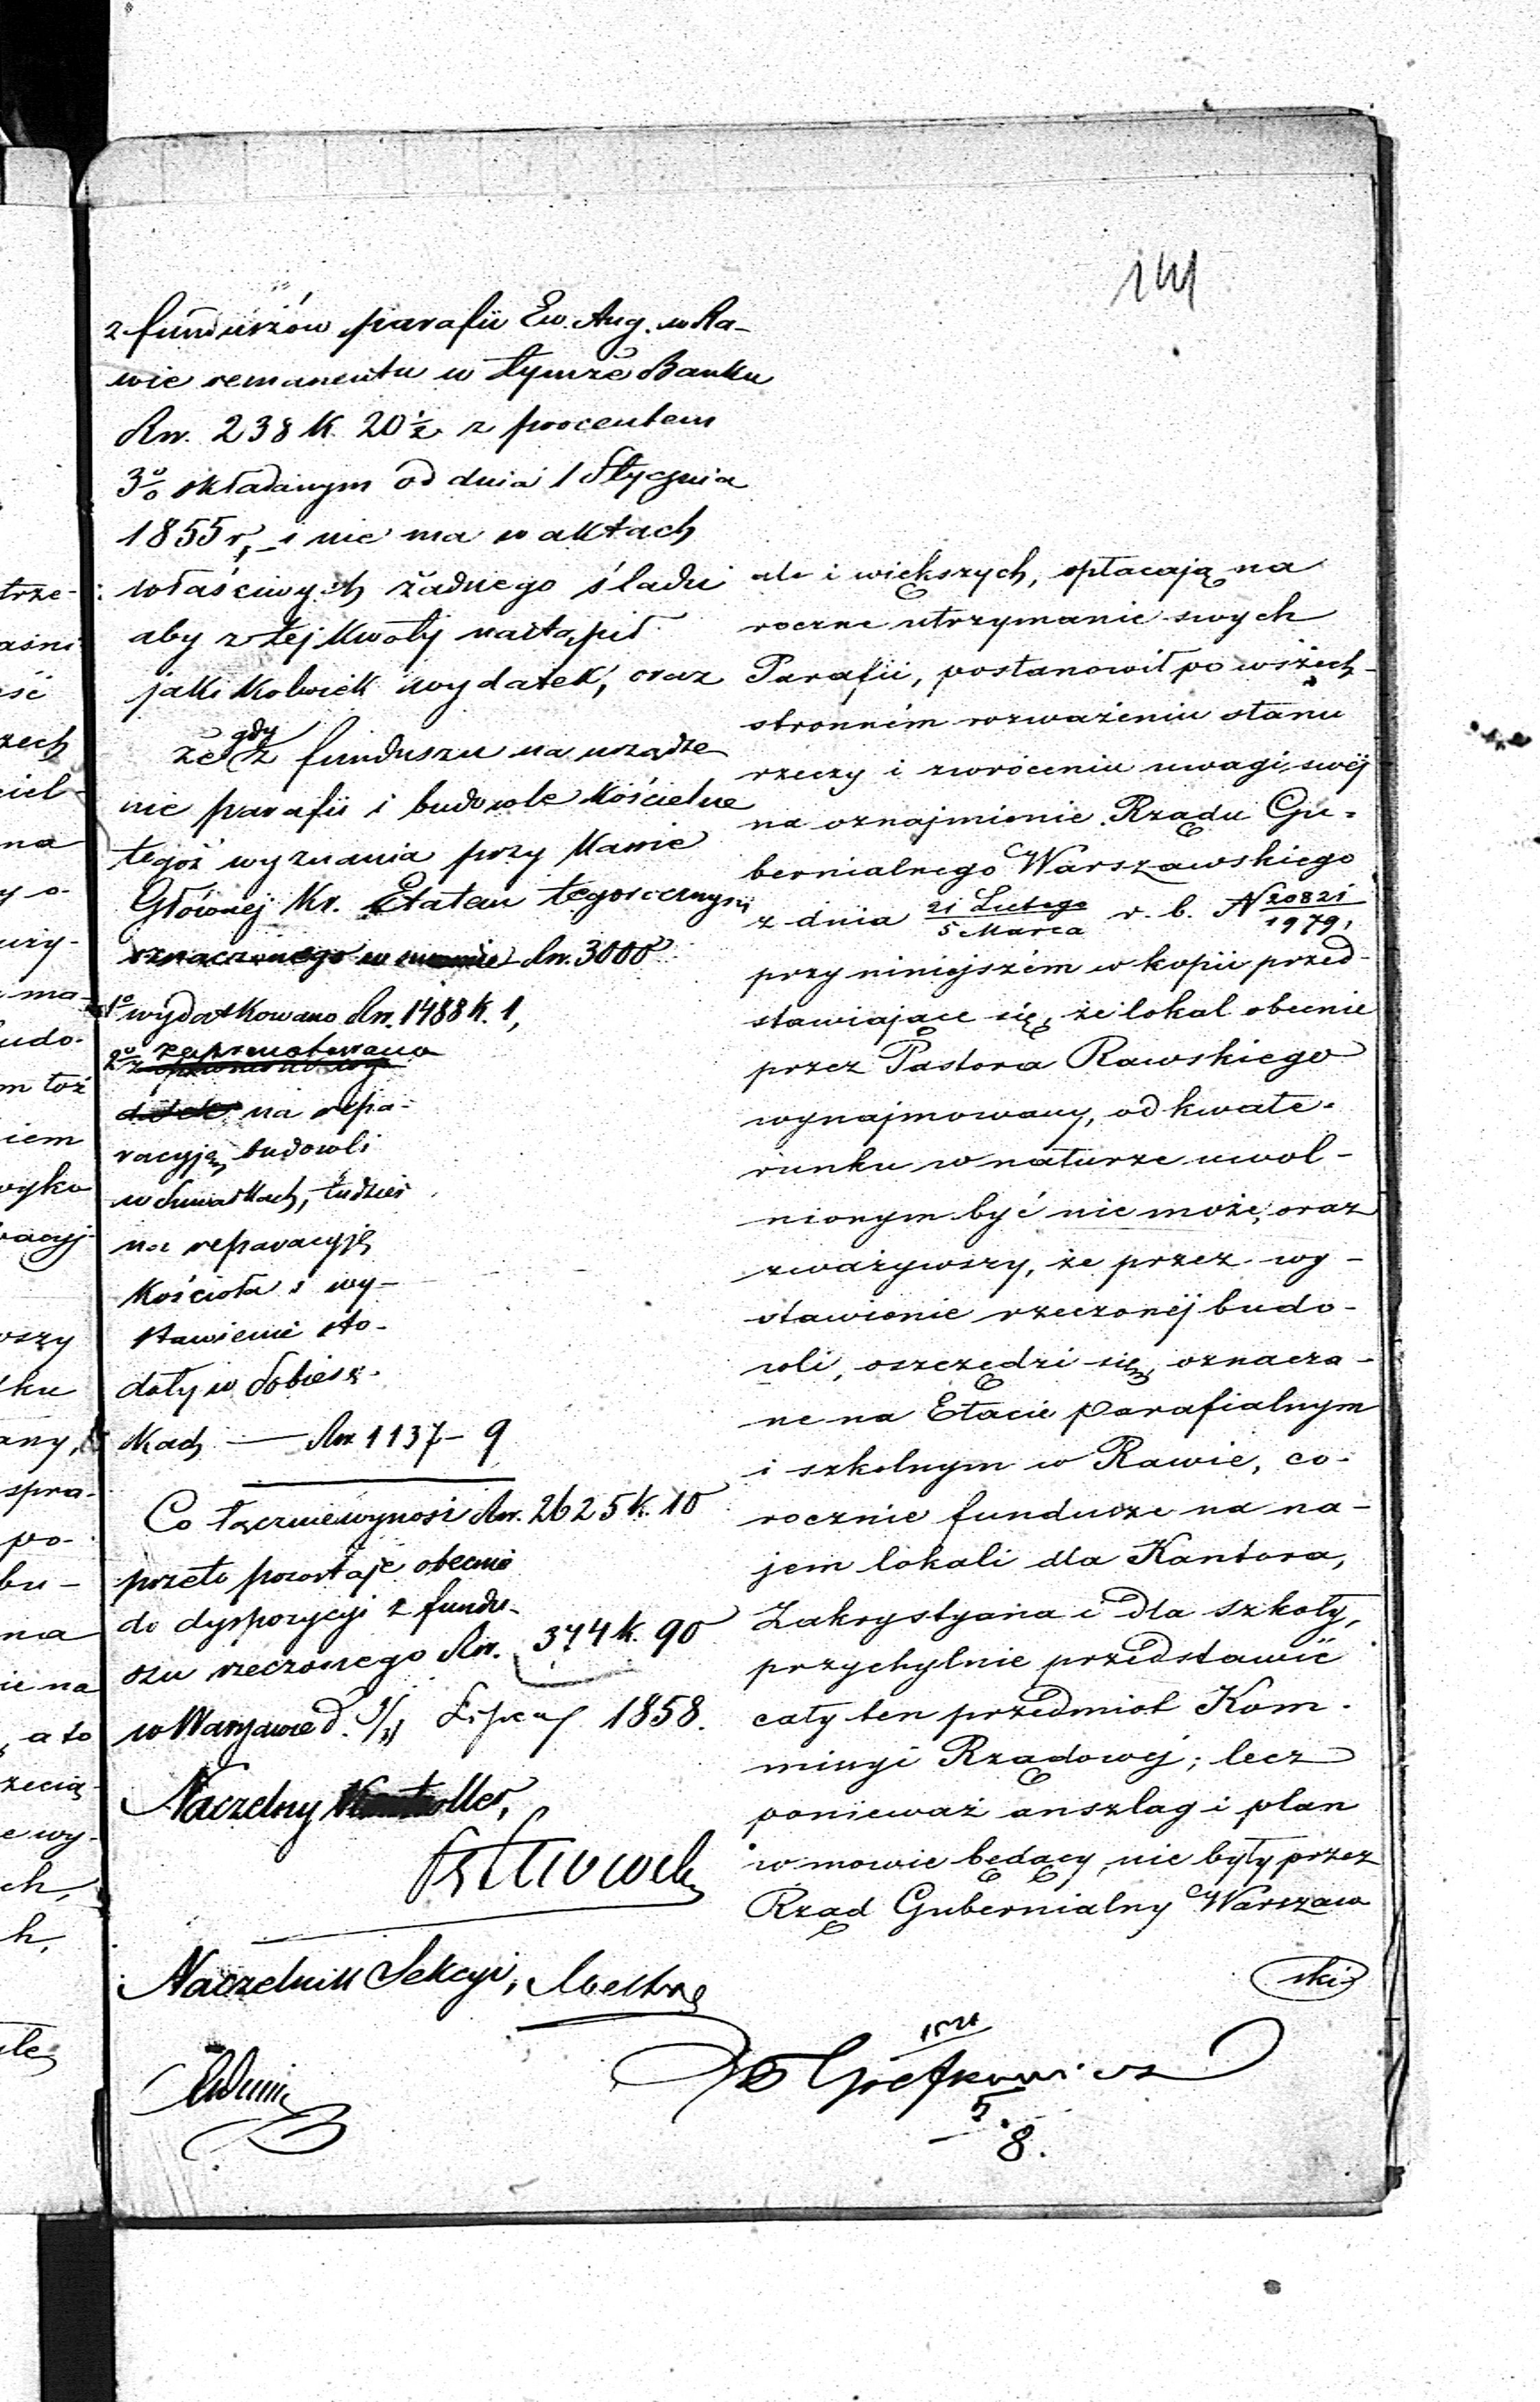 141
z funduszów parafii Ew. Aug. w Ra-
wie remanentu w tymże Banku
Rsr. 238 k. 20½ z procentem
3% składanym od dnia 1 Stycznia
1855 r, i nie ma w aktach
właściwych żadnego śladu
aby z tej kwoty nastąpił
jaki kolwiek wydatek, oraz
że gdy z funduszu na urządze
nie parafii i budowle kościelne
tegoż wyznania przy Kassie
Głównej Kr. Etatem tegorocznym
oznaczonego w summie Rsr. 3000
1o wydatkowano Rsr. 1488 k. 1,
2o zaprenotowano
na repa-
racyją budowli
w Suwałkach, tudzież
na reparacyję
kościoła i wy-
stawienie sto-
doły w Sobies-
kach — Rsr 1137 - 9
Co łącznie wynosi Rsr. 2625 k. 10
przeto pozostaje obecnie
do dyspozycyi z fundu-
szu rzeczonego Rsr. 374 k. 90
w Warszawie d. Lipca 1858.
Naczelny Kontroller,
Naczelnik Sekcyi,
ale i większych, opłacają na
roczne utrzymanie swych
Parafii, postanowił po wszech-
stronném rozważeniu stanu
rzeczy i zwróceniu uwagi swéj
na oznajmienie Rządu Gu-
bernialnego Warszawskiego
z dnia 21 Lutego / 5 Marca r. b. N 20821 / 1979,
przy niniejszém w kopii przed-
stawiające się, że lokal obecnie
przez Pastora Rawskiego
wynajmowany, od kwate-
runku w naturze uwol-
nionym być nie może, oraz
zważywszy, że przez wy-
stawienie rzeczonéj budo-
wli, oszczędzi się, oznacza-
ne na Etacie parafialnym
i szkolnym w Rawie, co-
rocznie fundusze na na-
jem lokali dla Kantora,
Zakrystyana i dla szkoły,
przychylnie przedstawić
cały ten przedmiot Kom-
missyi Rządowej; lecz
ponieważ anszlag i plan
w mowie będący, nie były przez
Rząd Gubernialny Warszaw
ski
5
8.